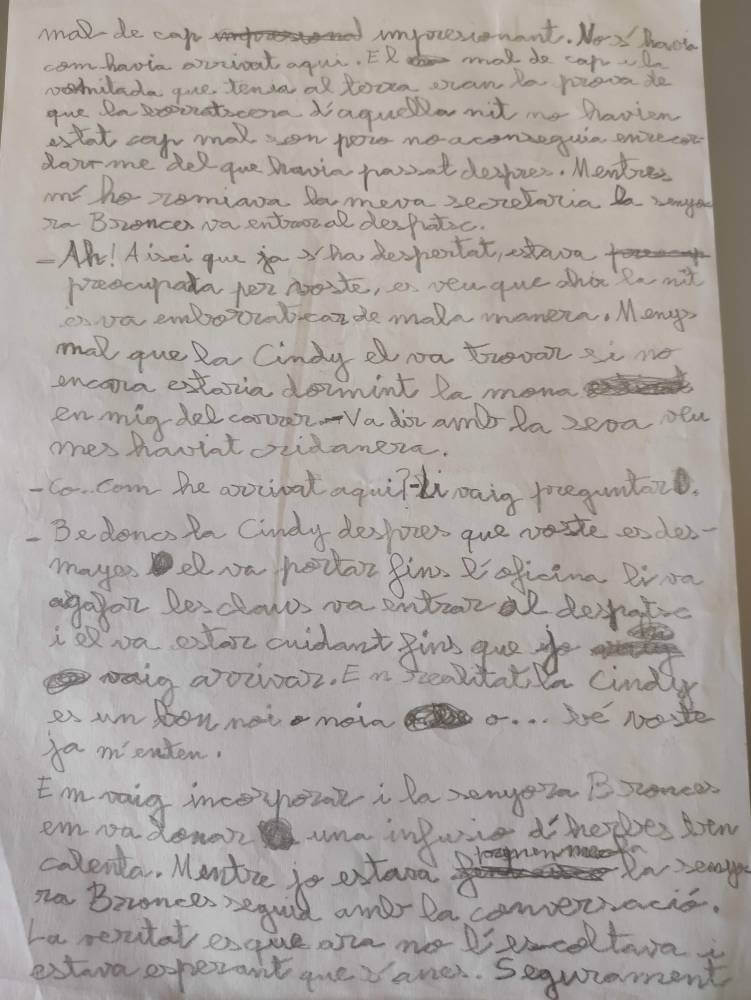 mal de cap impresionant. No s'havia
com havia arrivat aqui. El mal de cap i la
vomitada que tenia al terra eran la prova de
que la borratxera d'aquella nit no havien
estat cap mal son pero no aconseguia enrecor-
darme del que havia passat despres. Mentres
m'ho romiava la meva secretaria la senyo-
ra Bronces va entrar al despatx.
- Ah! Aixi que ja s'ha despertat, estava
preocupada per voste, es veu que ahir la nit
es va emborratxar de mala manera. Menys
mal que la Cindy el va trovar si no
encara estaria dormint la mona
en mig del carrer.-Va dir amb la seva veu
mes haviat cridanera.
- Co..com he arrivat aqui?-li vaig preguntar.
- Be doncs la Cindy despres que voste es des-
mayes el va portar fins l'oficina li va
agafar les claus va entrar al despatx
i el va estar cuidant fins que jo
vaig arrivar. En realitat la Cindy
es un bon noi o noia o... bé voste
ja m'enten.
Em vaig incorporar i la senyora Bronces
em va donar una infusio d'herbes ben
calenta. Mentre jo estava prenenmela la senyo-
ra Bronces seguia amb la conversació.
La veritat es que ara no l'escoltava i
estava esperant que s'anes. Segurament